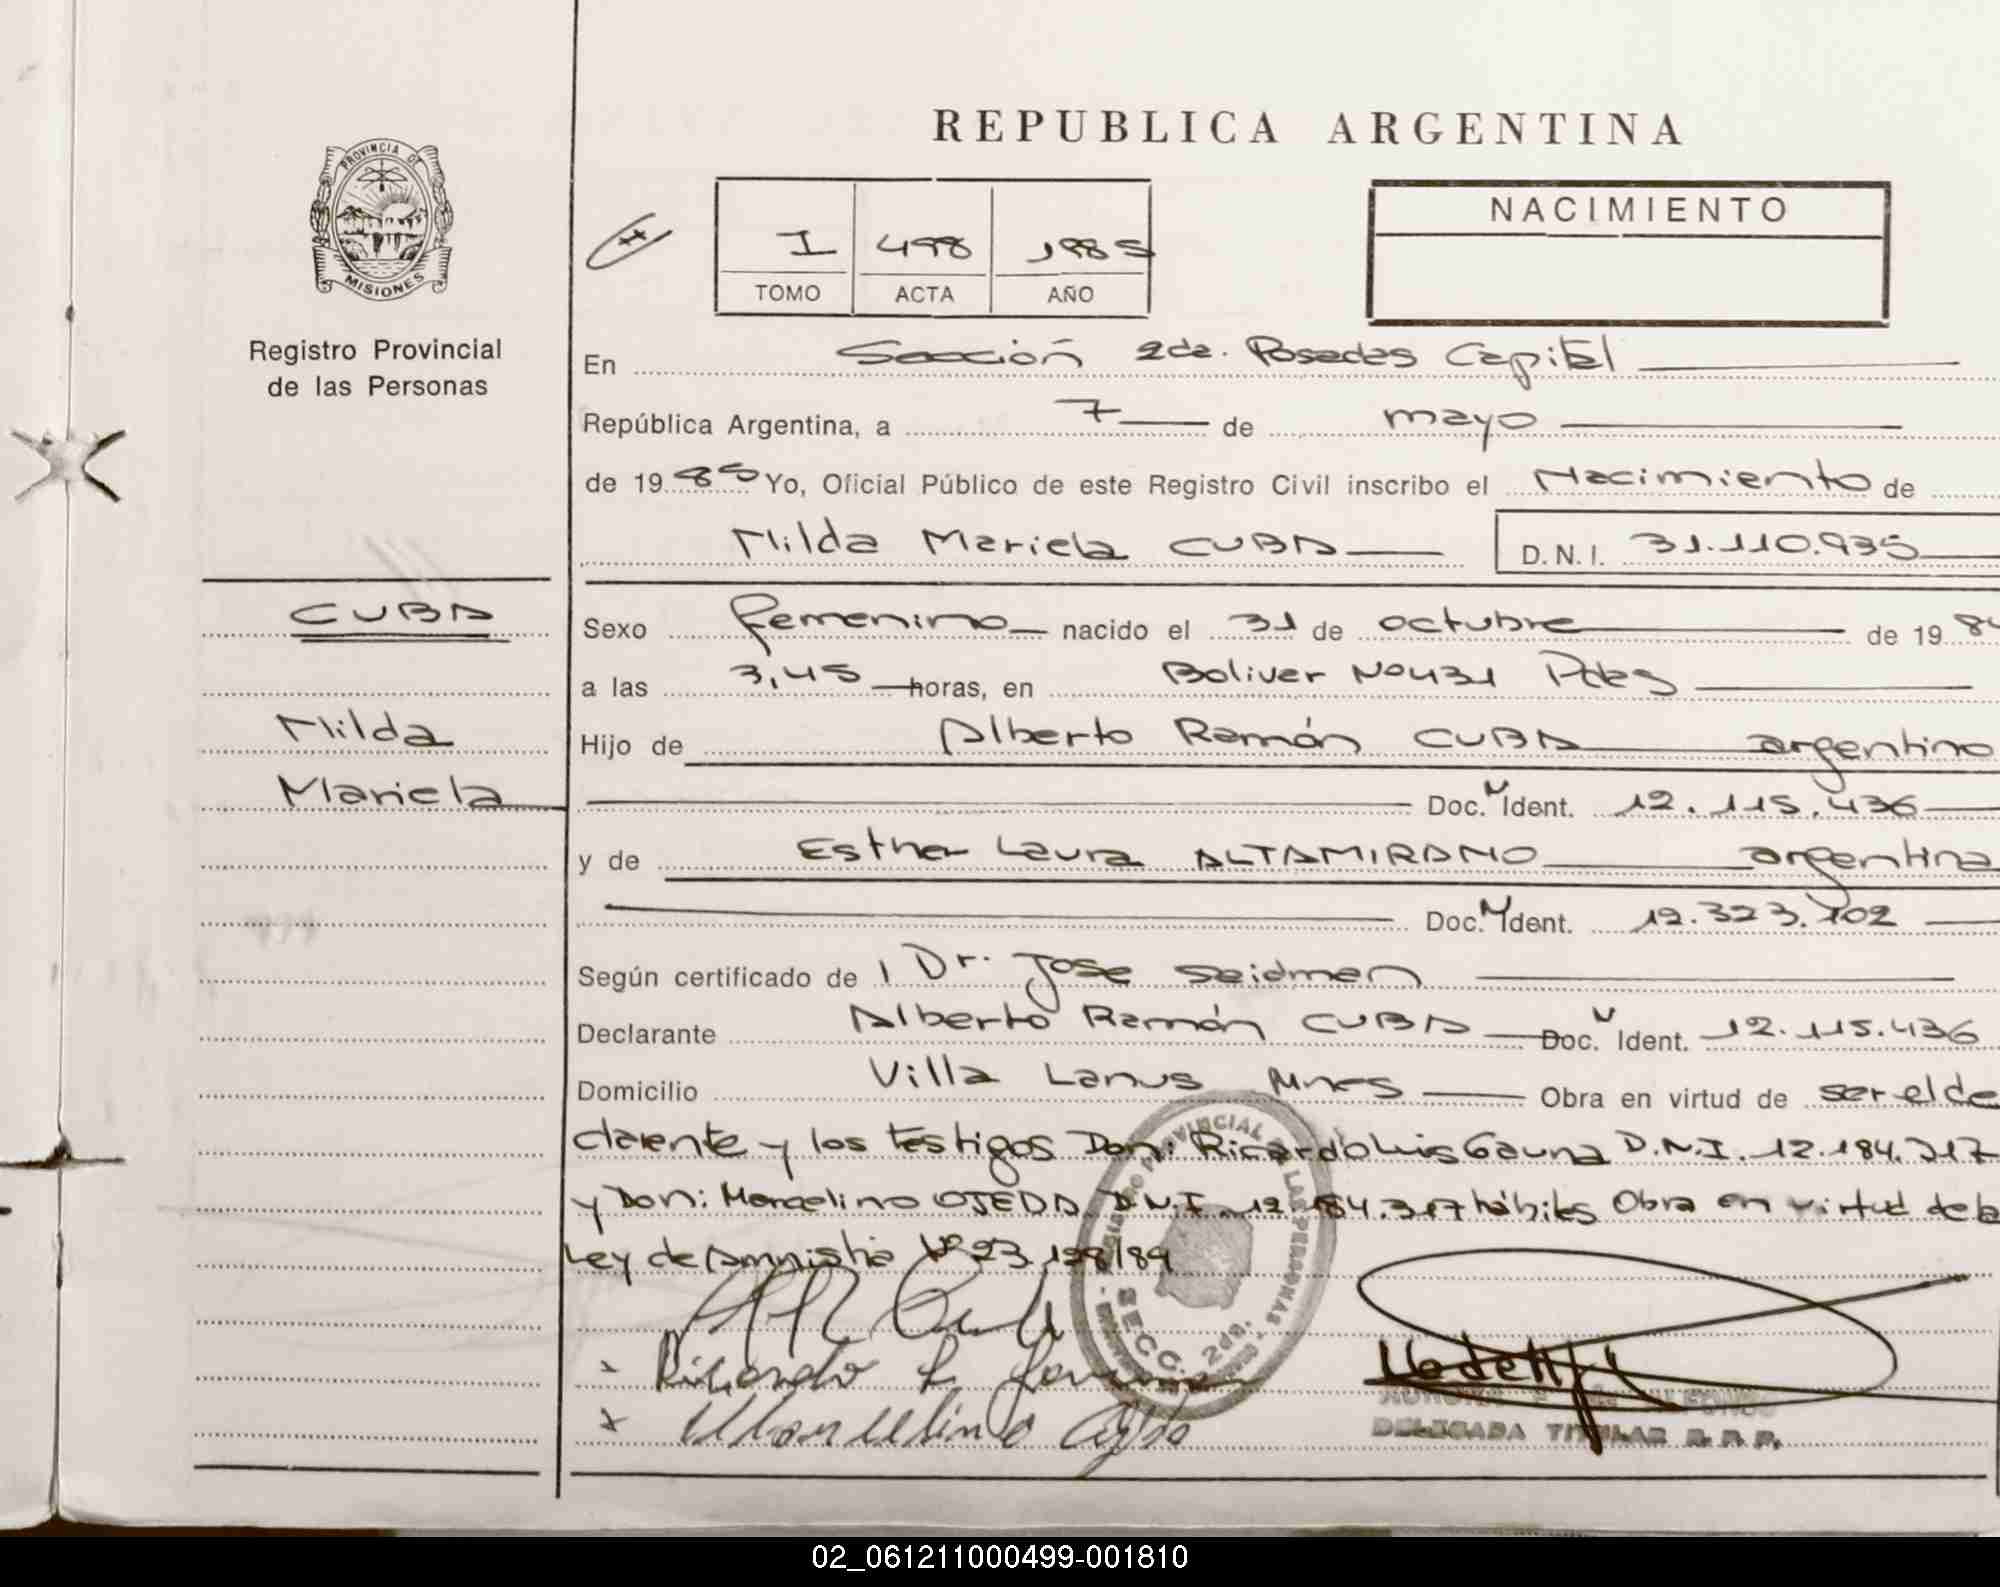 REPUBLICA ARGENTINA
PROVINCIA DE
MISIONES
Registro Provincial
de las Personas
I 498 1985
TOMO ACTA AÑO
NACIMIENTO
En Sección 2da. Posadas Capital
República Argentina, a 7 de mayo
de 1985 Yo, Oficial Público de este Registro Civil inscribo el Nacimiento de
Milda Mariela CUBA D.N.I. 31.110.935
CUBA
Milda
Mariela
Sexo femenino nacido el 31 de octubre de 1984
a las 3,45 horas, en Bolivar Nº 431 Pdas
Hijo de Alberto Ramón CUBA argentino
Doc. Ident. 12.115.436
y de Esther Laura ALTAMIRANO argentina
Doc. Ident. 12.323.702
Según certificado de Dr. Jose Seidman
Declarante Alberto Ramón CUBA Doc. Ident. 12.115.436
Domicilio Villa Lanus Mnes Obra en virtud de ser el de
clarante y los testigos Don: Ricardo Luis Gauna D.N.I. 12.184.217
y Don: Marcelino OJEDA D.N.I. 12.184.317 hábiles Obra en virtud de la
Ley de Amnistia Nº 23.128/84
Ricardo L.
Marcelino
SECC. 2da.
DELEGADA TITULAR R. P. P.
02_061211000499-001810